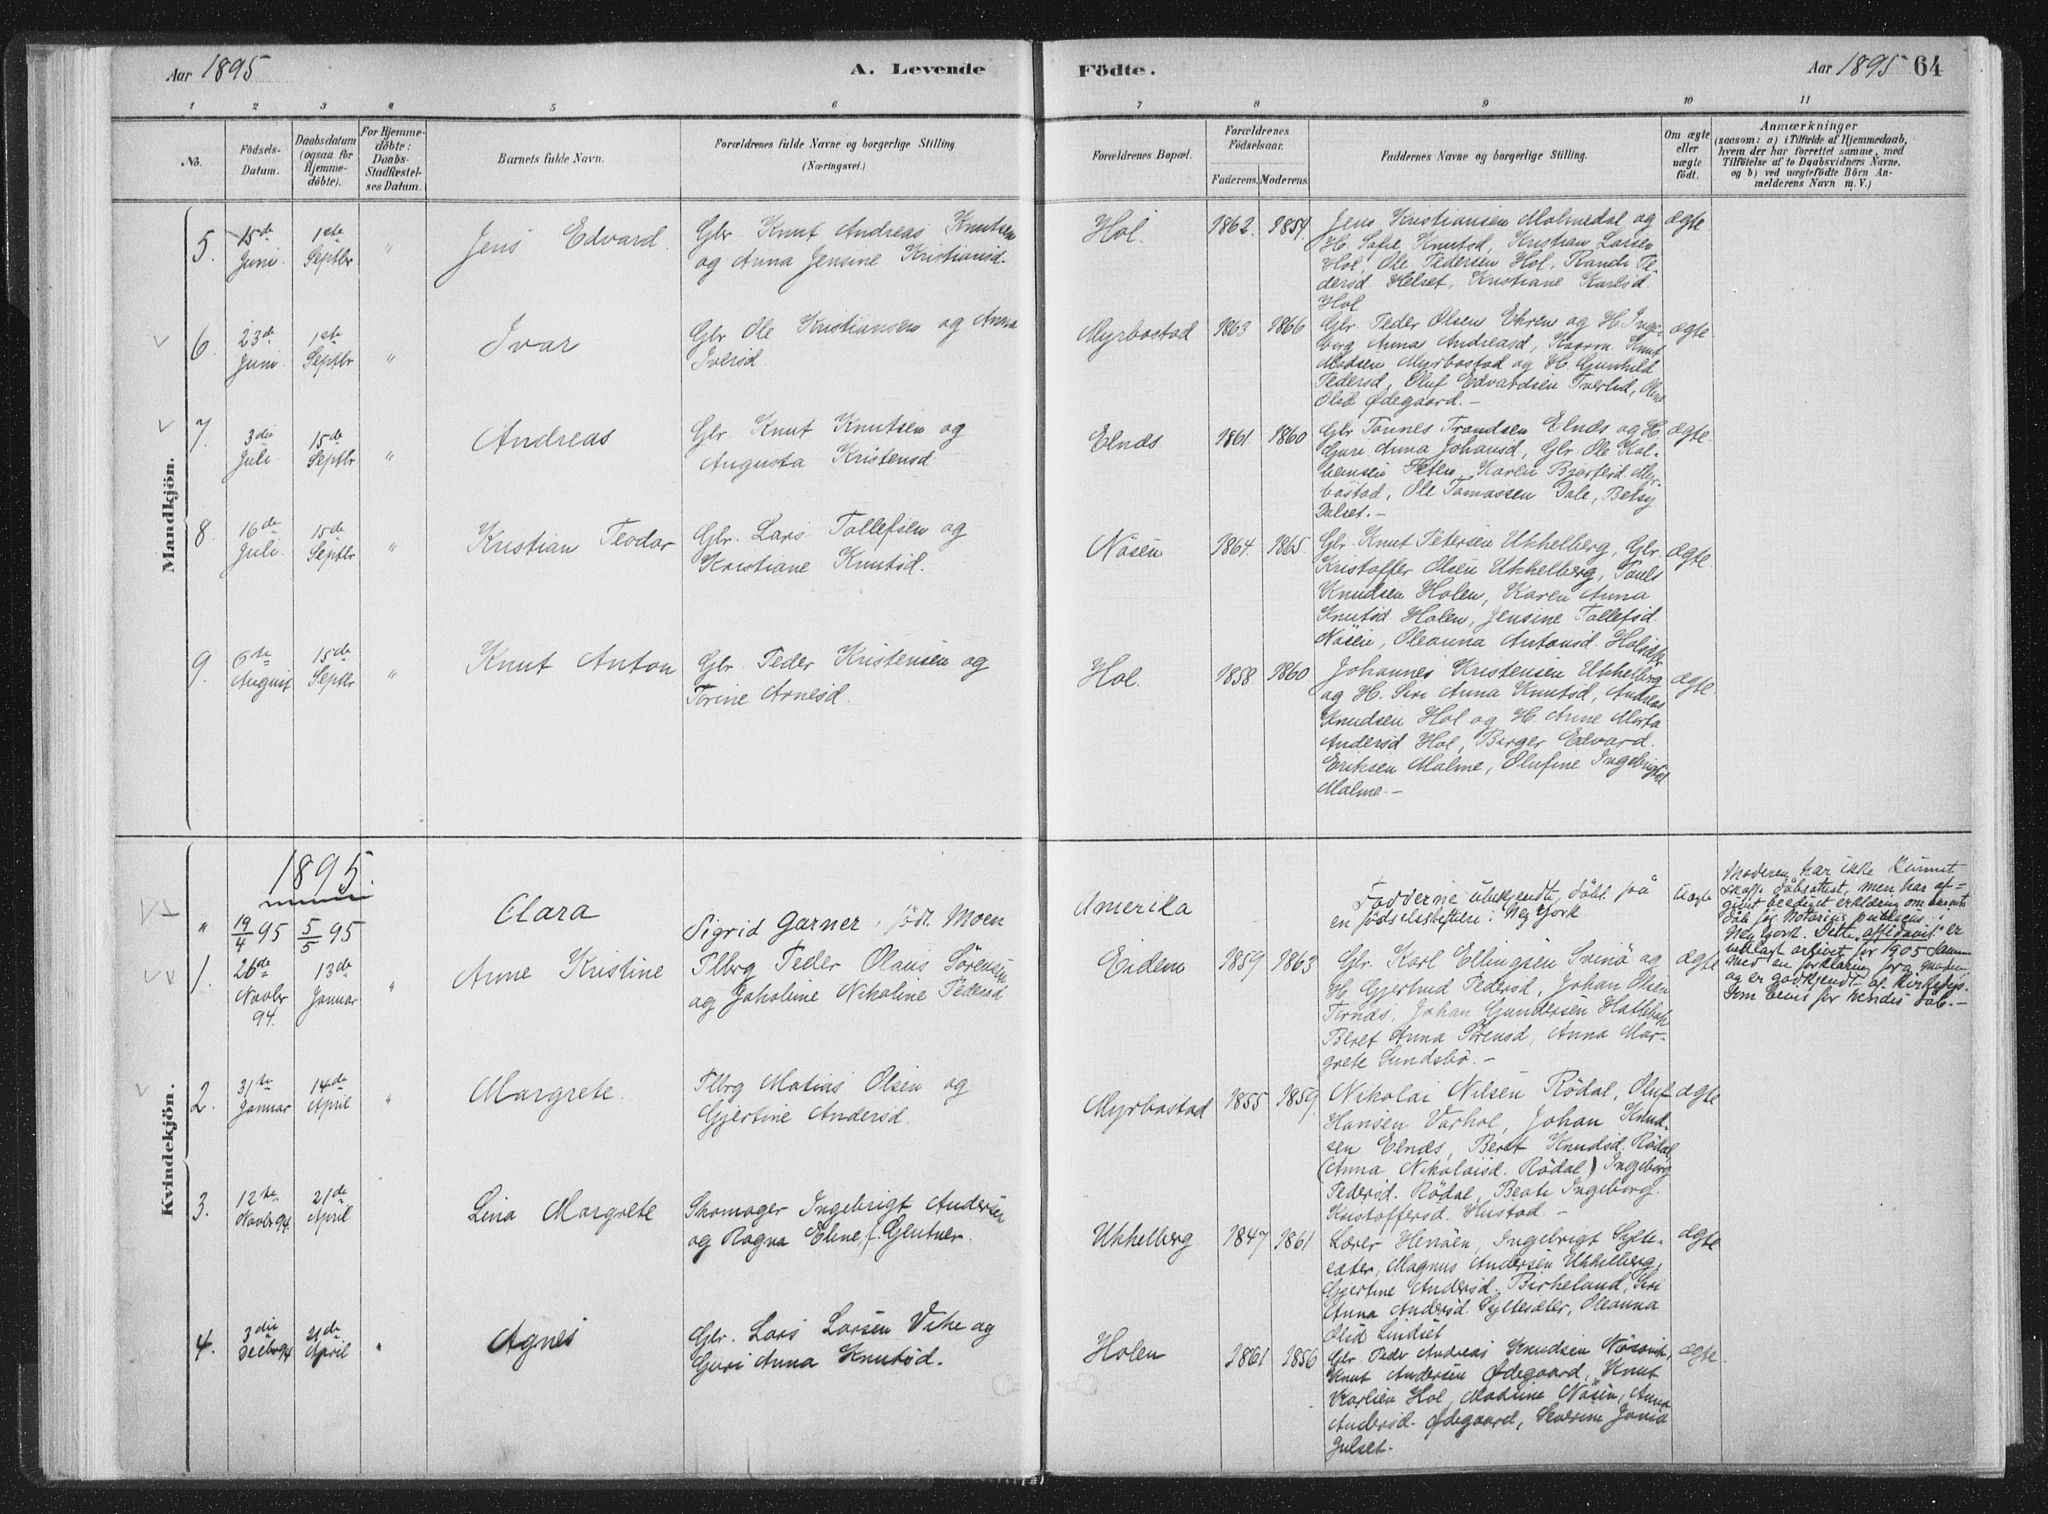 Aar 1895 A. Levende Födte. Aar 1895 64
1 2 3 4 5 6 7 8 9 10 11
No.
Födsels-
Datum.
Daabsdatum
(ogsaa for
Hjemme-
döbte).
For Hjemme-
döbte:
Daabs-
Stadfæstel-
ses Datum.
Barnets fulde Navn.
Forældrenes fulde Navne og borgerlige Stilling
(Næringsvei.)
Forældrenes Bopæl.
Forældrenes
Födselsaar.
Faderens. Moderens.
Faddernes Navne og borgerlige Stilling.
Om ægte
eller
uægte
födt.
Anmærkninger
(saasom: a) i Tilfælde af Hjemmedaab,
hvem der har forrettet samme, med
Tilföielse af to Daabsvidners Navne,
og b) ved uægtefödte Börn An-
melderens Navn m. V.)
Mandkjön.
5. 15de Juni 1ste Septbr " Jens Edvard.
Glr. Knut Andreas Knutsen
og Anna Jensine Kristiansd.
Hol. 1862. 1859.
Jens Kristiansen Malmedal og
H. Sofie Knutsd, Kristian Larsen
Hol, Ole Pedersen Hol, Randi Pe-
dersd Helset, Kristiane Karlsd
Hol
ægte
6. 23de Juni 1ste Septbr " Ivar
Glr Ole Kristiansen og Anna
Iversd
Myrbostad 1863 1866
Glr. Peder Olsen Ekren og H. Inge-
borg Anna Andreasd, Kaarm. Knut
Madsen Myrbostad og H. Gunhild
Pedersd, Oluf Edvardsen Tverlid, Oline
Olsd Ødegaard. –
ægte
7. 3die Juli 15de Septbr " Andreas
Glr. Knut Knutsen og
Augusta Kristensd
Elnæs 1861. 1860
Glr Tönnes Trondsen Elnæs og H.
Guri Anna Johansd, Glr Ole Kol-
beinsen Seten, Karen Bjarfesd Myr-
bostad, Ole Tomassen Dale, Betsy
Dalset. –
ægte.
8. 16de Juli. 15de Septbr " Kristian Teodor
Glr. Lars Tollefsen og
Kristiane Knutsd.
Nösen 1864. 1865
Glr. Knut Petersen Ukkelberg, Glr.
Kristoffer Olsen Ukkelberg, Pauls
Knudsen Holen, Karen Anna
Knutsd Holen, Jensine Tollefsd.
Nösen, Oleanna Antonsd.
ægte.
9. 6te August 15de Septbr " Knut Anton
Glr. Peder Kristensen og
Torine Arnesd.
Hol 1858. 1860
Johannes Kristensen Ukkelberg
og H. Siri Anna Knutsd, Andreas
Knudsen Hol og H. Anne Marta
Andersd Hol, Birger Edvard
Eriksen Malme, Olufine Ingebrigtsd
Malme. –
ægte.
Kvindekjön.
1895.
" 19/4 95 5/5 95 Clara
Sigrid Garner, födt Moen
Amerika
Fadderne ubekjendt, döbt på
en födselsstiftelse i New York
uægte
Moderen har ikke kunnet
skaffe dåbsattest, men har af-
givet beediget erklæring om barnets
dåb for Notarius publicus i
New York. Dette "affidavit" er
vedlagt arkivet for 1905 sammen
med en forklaring fra moderen
og er godkjendt af Kirkedep.
som bevis for hendes dåb. –
1. 26de Novbr 94. 13de Januar " Anne Kristine
Flbrg Peder Olaus Sörensen
og Jakoline Nikoline Pedersd
Eidem 1859 1863
Glr. Karl Ellingsen Svinö og
H. Gjertrud Pedersd, Johan Olsen
Tornæs, Johan Gundersen Hatlebak
Beret Anna Sörensd, Anna Mar-
grete Sundsbö. –
ægte
2. 31te Januar 14de April " Margrete.
Flbrg Matias Olsen og
Gjertine Andersd.
Myrbostad 1855 1859.
Nikolai Nilsen Rödal, Oluf
Hansen Varhol, Johan Knud-
sen Elnæs, Beret Knudsd. Rödal
(Anna Nikolaisd. Rödal) Ingeborg
Pedersd. Rödal, Beate Ingeborg
Kristoffersd. Hustad –
ægte
3. 12te Novbr 94. 21de April Lina Margrete
Skomager Ingebrigt Andersen
og Ragna Eline, f. Glutner.
Ukkelberg 1847 1861
Lærer Henöen, Ingebrigt Sylte-
sæter, Magnus Andersen Ukkelberg,
Gjertine Andersd. Birkeland, Siri
Anna Andersd. Syltesæter, Oleanna
Olsd Lindset
ægte
4. 3die Decbr 94 21de April " Agnes
Glr. Lars Larsen Vike og
Guri Anna Knutsd.
Holen 1861 1856
Glr. Peder Andreas Knudsen Nösvik,
Knut Andersen Ødegaard, Knut
Karlsen Hol, Madsine Nösen, Anna
Andersd. Ødegaard, Severine Jansd
Julset.
ægte.